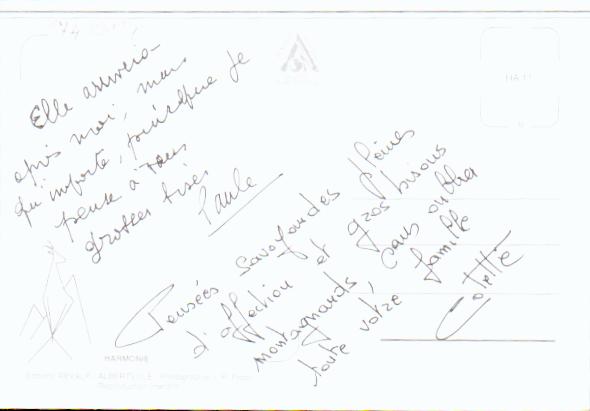 Elle arrivera
après moi, mais
qu'importe, puisque je
pense à vous
grosses bises
Paule
Pensées savoyardes pleines
d'affection et gros bisous
montagnards, sans oublier
toute votre famille
Colette
HA 11
HARMONIE
Editions REVALP - ALBERTVILLE
Reproduction interdite